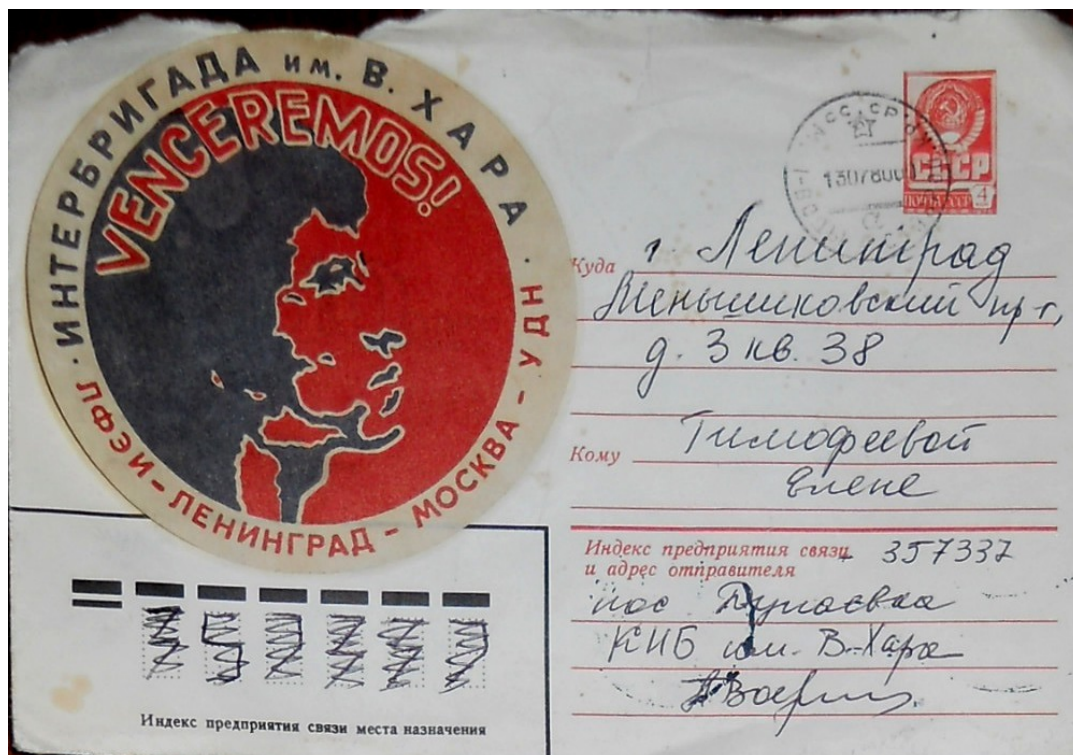 ИНТЕРБРИГАДА им. В. ХАРА
VENCEREMOS!
ЛФЭИ - ЛЕНИНГРАД - МОСКВА - УДН
СССР
ПОЧТА СССР 4
130780
Куда г Ленинград
Меньшиковский пр-т,
д. 3 кв. 38
Кому Тимофеевой
Елене
Индекс предприятия связи 357337
и адрес отправителя
пос
КИБ им. В. Хара
Индекс предприятия связи места назначения